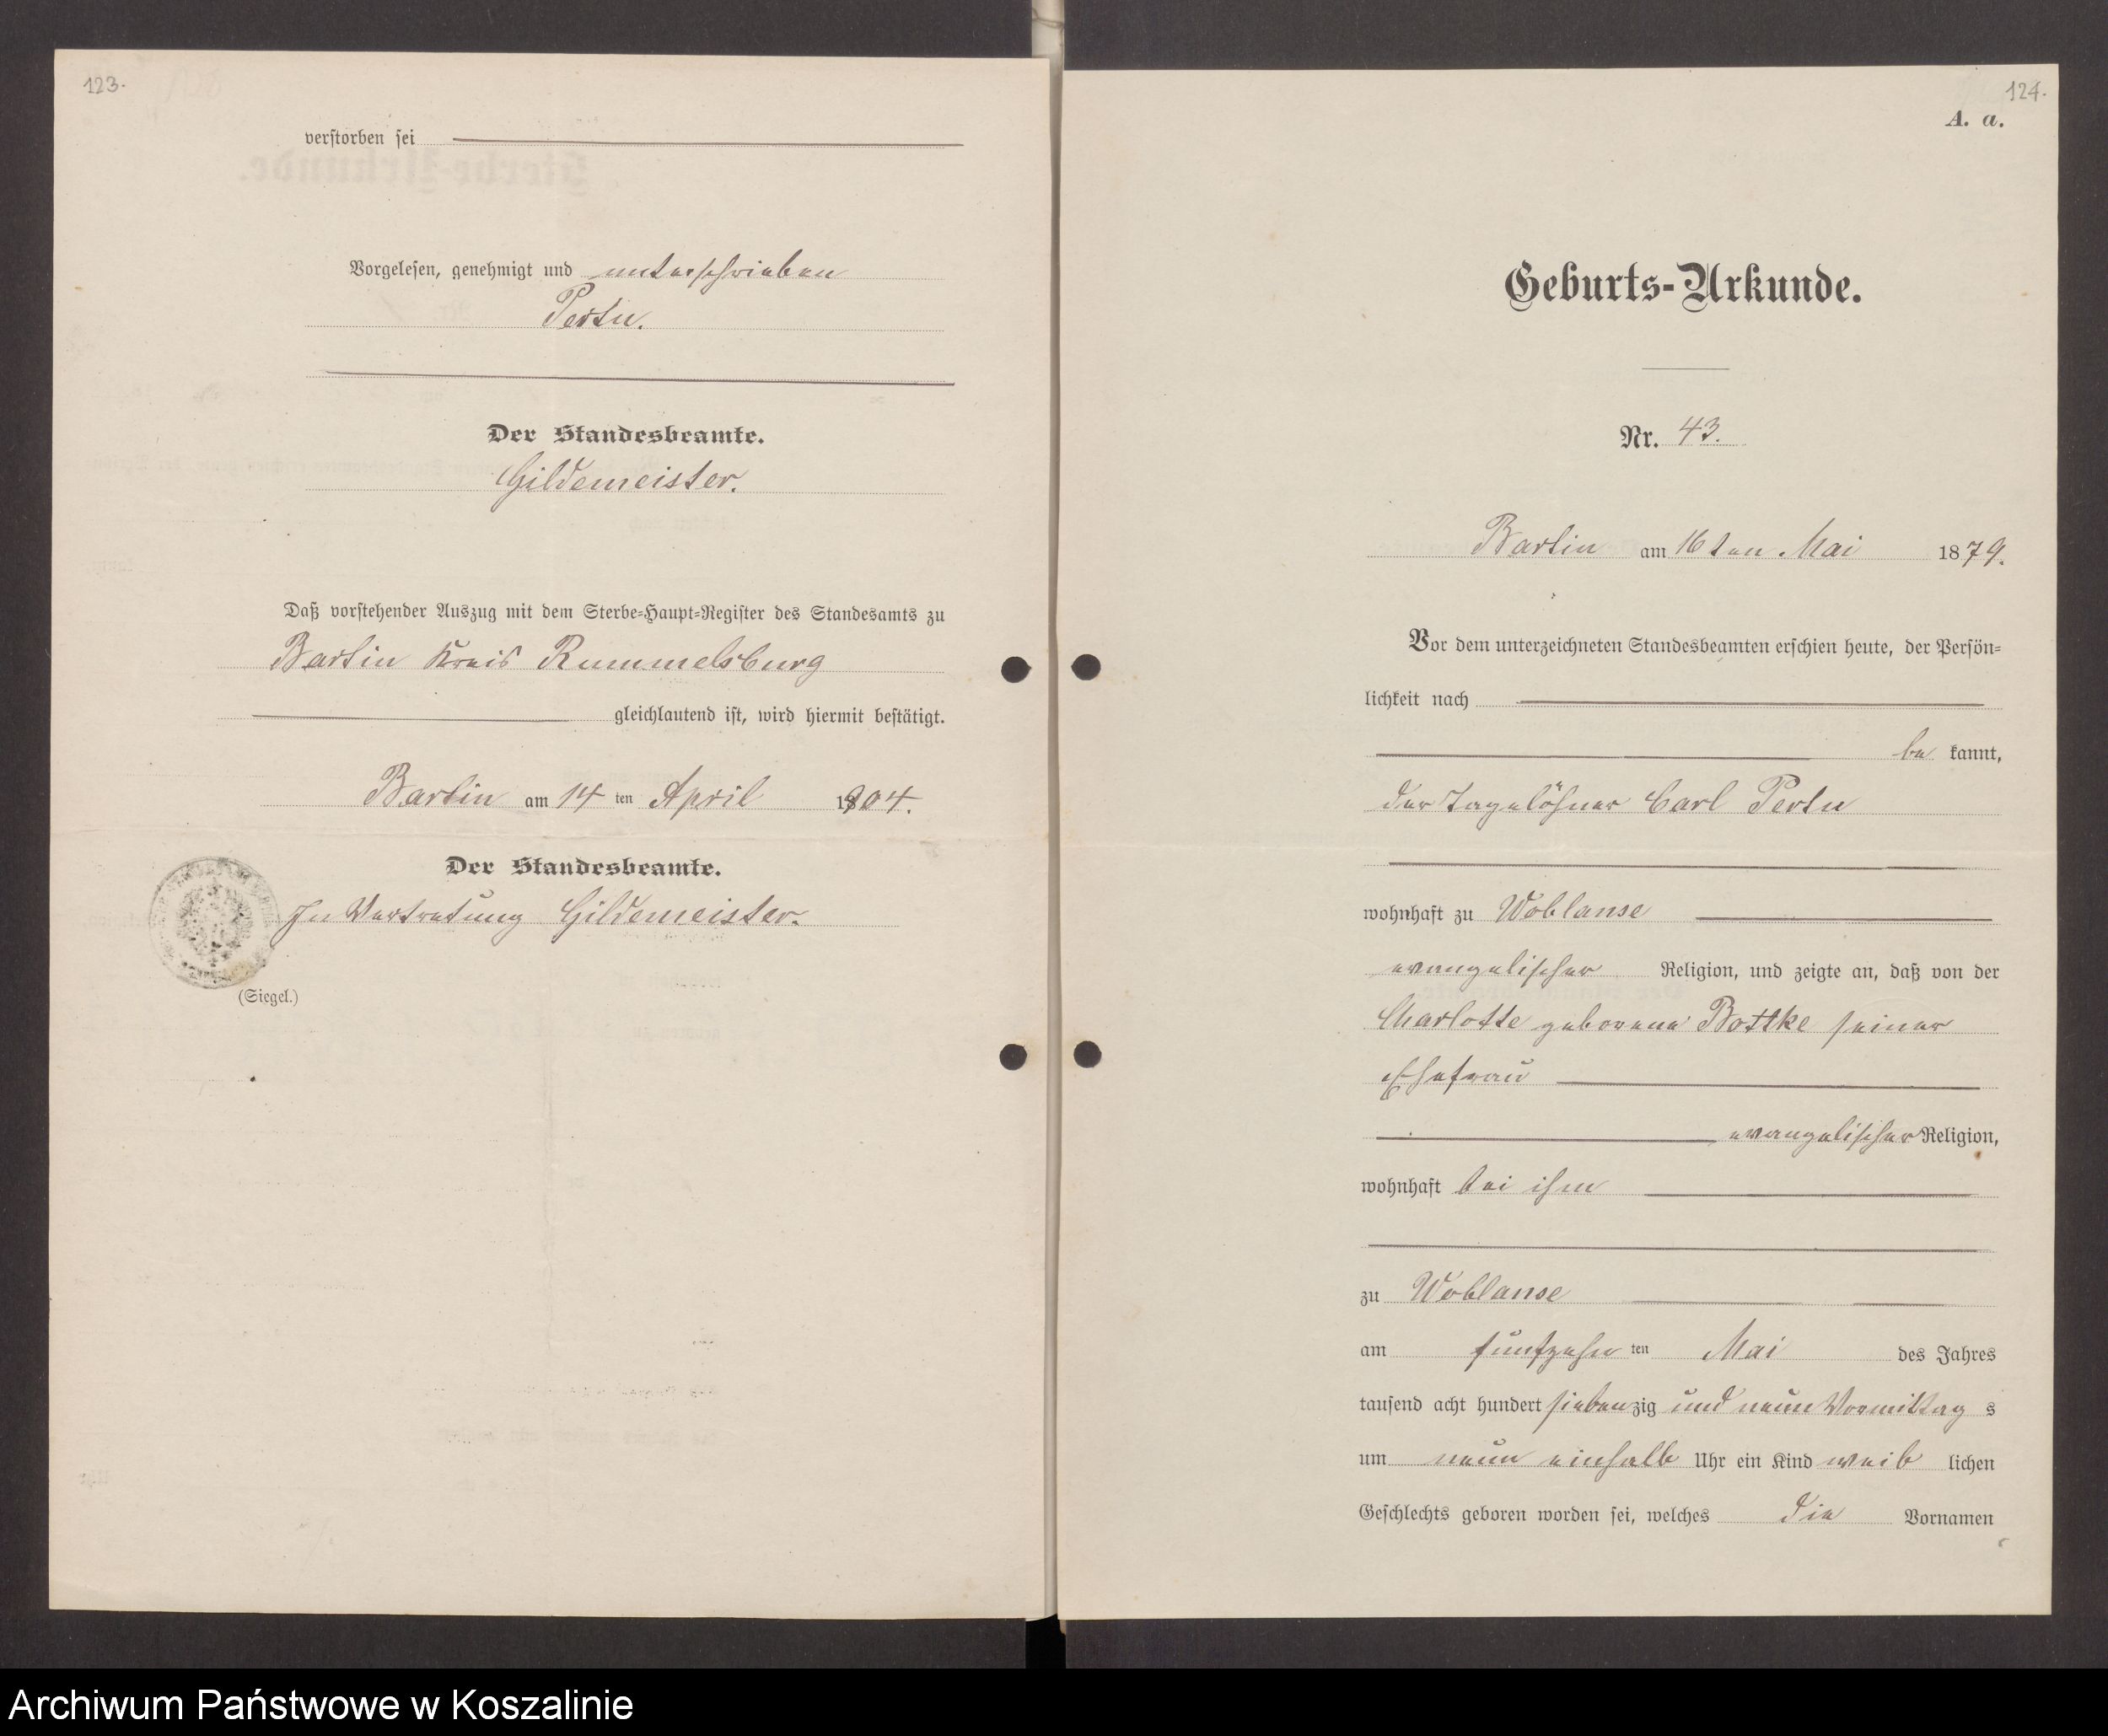 123.
verstorben sei
Vorgelesen, genehmigt und unterschrieben
Pertu.
Der Standesbeamte.
Gildemeister.
Daß vorstehender Auszug mit dem Sterbe-Haupt-Register des Standesamts zu
Bartin Kreis Rummelsburg
gleichlautend ist, wird hiermit bestätigt.
Bartin am 14 ten April 1904.
Der Standesbeamte.
In Vertretung Gildemeister.
(Siegel.)
124.
A. a.
Geburts-Urkunde.
Nr. 43.
Bartin am 16ten Mai 1879.
Vor dem unterzeichneten Standesbeamten erschien heute, der Persön-
lichkeit nach
be kannt,
der Tagelöhner Carl Pertu
wohnhaft zu Woblanse
evangelischer Religion, und zeigte an, daß von der
Charlotte geborene Bottke seiner
Ehefrau
evangelischer Religion,
wohnhaft bei ihm
zu Woblanse
am fünfzehn ten Mai des Jahres
tausend acht hundert siebenzig und neun Vormittag s
um neun einhalb Uhr ein Kind weib lichen
Geschlechts geboren worden sei, welches die Vornamen
Archiwum Państwowe w Koszalinie